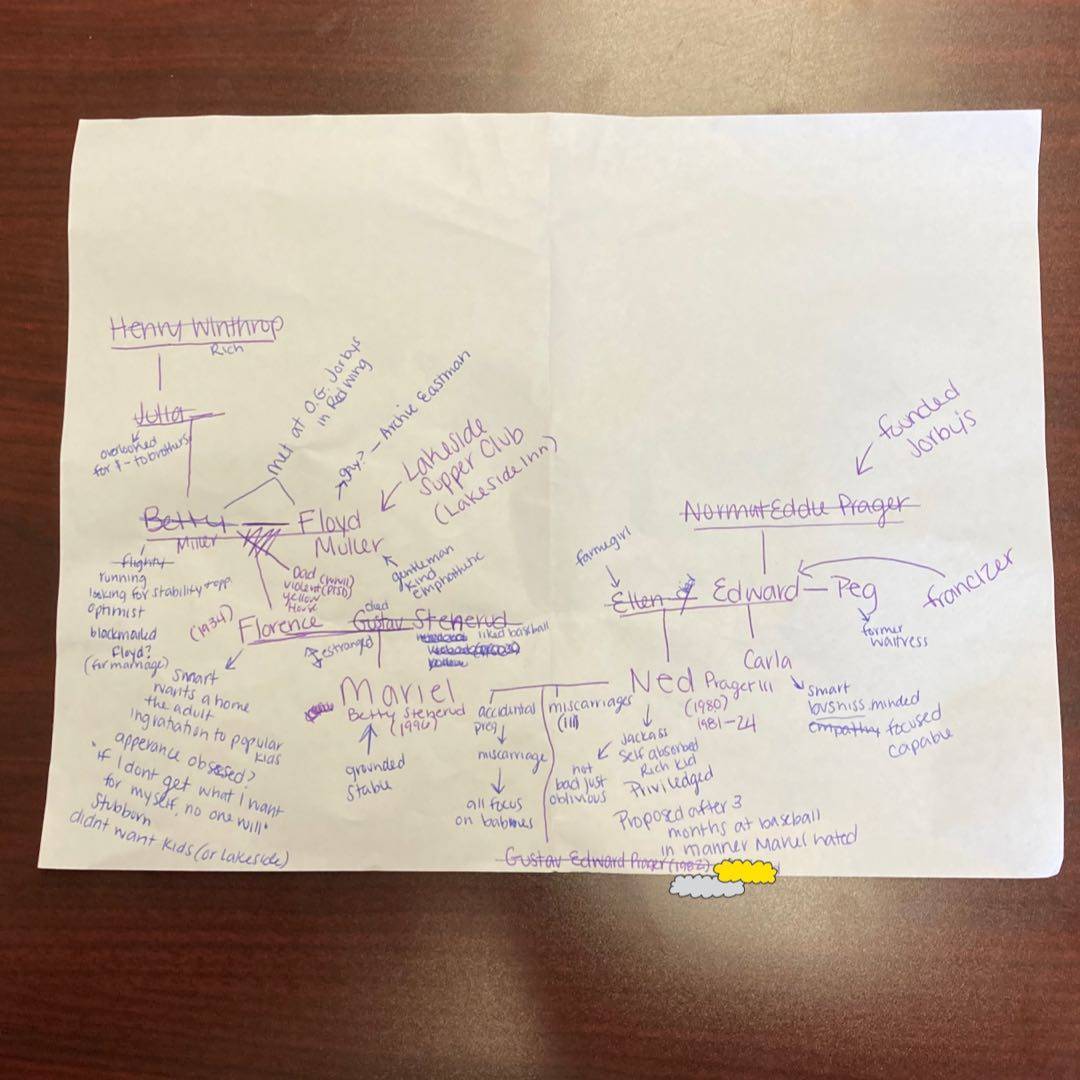 Henry Winthrop
Rich
Julia
overlooked
for $ - to brothers
met at O.G. Jorbys
in Red Wing
gay? - Archie Eastman
Lakeside
Supper Club
(Lakeside Inn)
Betty
Miller
Floyd
Muller
flighty
running
looking for stability + opp.
optimist
blackmailed
Floyd?
(for marriage)
Dad (WWII)
violent (PTSD)
yellow
House
gentleman
kind
Emphathetic
(1934)
Florence
died
Gustav Stenerud
liked baseball
estranged
smart
wants a home
the adult
ingratiation to popular
kids
apperance obsessed?
"if I dont get what I want
for myself, no one will"
stubborn
didnt want kids (or lakeside)
Mariel
Betty Stenerud
(1996)
grounded
stable
founded
Jorby's
Normut Eddie Prager
farmegirl
Ellen
Edward - Peg
francizer
former
waitress
Ned Prager III
(1980)
1981-24
Carla
smart
busniss minded
empathy focused
capable
accidental
preg
miscarriage
all focus
on babines
miscarriages
(III)
Jackass
self absorbed
Rich kid
Priviledged
not
bad just
oblivious
Proposed after 3
months at baseball
in manner Mariel hated
Gustav Edward Prager (1982)